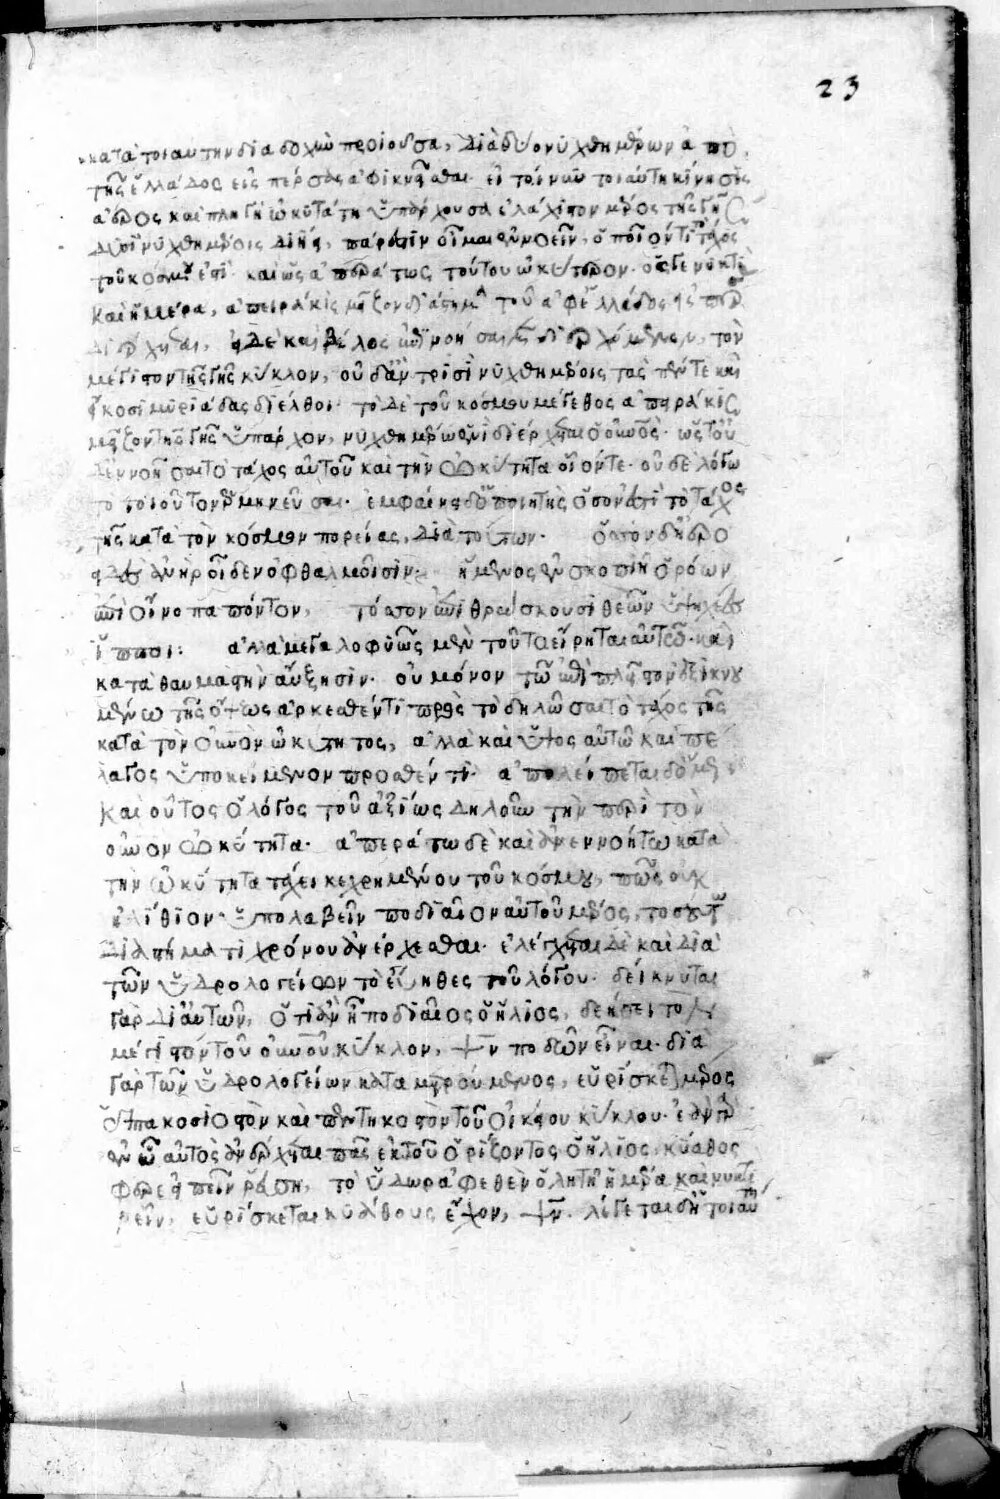 23
κατα τοιαυτην διαδοχὴν προϊοῦσα, διὰ δύο νυχθημέρων ἀπὸ
τῆς ἑλλάδος εἰς πέρσας ἀφικνεῖσθαι. εἰ τοίνυν τοιαύτη κίνησις
ἀέρος καὶ πληγὴ ὠκυτάτη ὑπάρχουσα ἐλάχιστον μέρος τῆς γῆς
δυσὶ νυχθημέροις διήει, πάρεστιν οἶμαι ἐννοεῖν, ὁποῖόν τι τάχος
τοῦ κόσμου ἐστὶ. καὶ ὡς ἀπεράτως τούτου ὠκύτερον. ὅς γε νυκτὶ
καὶ ἡμέρα, ἀπειράκις μεῖζον διάστημα τοῦ ἀφ' ἑλλάδος εἰς πέρσ
διέρχεται. εἰ δὲ καὶ βέλος ἐπινοήσαις διερχόμενον, τὸν
μέγιστον τῆς γῆς κύκλον, οὐδ' ἂν τρισὶ νυχθημέροις τὰς πέντε καὶ
εἴκοσι μυριάδας διέλθοι. τὸ δὲ τοῦ κόσμου μέγεθος ἀπειράκις
μεῖζον τῆς γῆς ὑπάρχον, νυχθημέρω ἑνὶ διέρχεται ὁ οὐνος. ὥστ' οὐ
δ' ἐννοῆσαι τὸ τάχος αὐτοῦ καὶ τὴν ὠκύτητα οἷόν τε. οὐδὲ λόγω
τὸ τοιοῦτον ἑρμηνεῦσαι. ἐμφαίνει δ' ὁ ποιητὴς ὅσον ἐστὶ τὸ τάχος
τῆς κατὰ τὸν κόσμον πορείας, διὰ τούτων. ὅσσον δ' ἠερο
ειδὲς ἀνὴρ ἴδεν ὀφθαλμοῖσιν. ἥμενος ἐν σκοπιῆ ὁρόων
ἐπὶ οἴνοπα πόντον, τόσσον ἐπιθρώσκουσι θεῶν ὑψηχέες
ἵπποι: ἀλλὰ μεγαλοφυῶς μὲν τοῦτο εἴρηται αὐτῶ. καὶ
κατὰ θαυμαστὴν αὔξησιν. οὐ μόνον τῶ ἐπὶ πλεῖστον ἐξικνου
μένω τῆς ὄψεως ἀρκεσθέντι πρὸς τὸ δηλῶσαι τὸ τάχος τῆς
κατὰ τὸν οὐνον ὠκύτητος, ἀλλὰ καὶ ὕψος αὐτῶ καὶ πέ
λαγος ὑποκείμενον προσθέντι. ἀπολείπεται δ' ὅμως
καὶ οὗτος ὁ λόγος τοῦ ἀξίως δηλοῦν τὴν περὶ τὸν
οὐνον ὠκύτητα. ἀπεράτω δὲ καὶ ἀνεννοήτω κατὰ
τὴν ὠκύτητα τάχει κεχρημένου τοῦ κόσμου, πῶς οὐκ
εὔηθες ὑπολαβεῖν ποδιαῖον αὐτοῦ μέρος, τοσούτω
διαστήματι χρόνου ἀνέρχεσθαι. ἐλέγχεται δὲ καὶ διὰ
τῶν ὑδρολογείων τὸ εὔηθες τοῦ λόγου. δείκνυται
γὰρ δι' αὐτῶν, ὅτι ἂν ἦ ποδιαῖος ὁ ἥλιος, δεήσει τὸν
μέγιστον τοῦ οὐνοῦ κύκλον, ψν ποδῶν εἶναι. διὰ
γὰρ τῶν ὑδρολογείων καταμετρούμενος, εὑρίσκεται μέρος
ἑπτακοσιοστὸν καὶ πεντηκοστὸν τοῦ οἰκείου κύκλου. ἐὰν γὰρ
ἐν ὧ αὐτὸς ἀνέρχεται πᾶς ἐκ τοῦ ὁρίζοντος ὁ ἥλιος, κύαθος
φέρε εἰπεῖν ῥεύση, τὸ ὕδωρ ἀφεθὲν ὅλη τῆ ἡμέρα καὶ νυκτὶ
ῥεῖν, εὑρίσκεται κυάθους ἔχον, ψν. λέγεται δὴ τοιαύτη